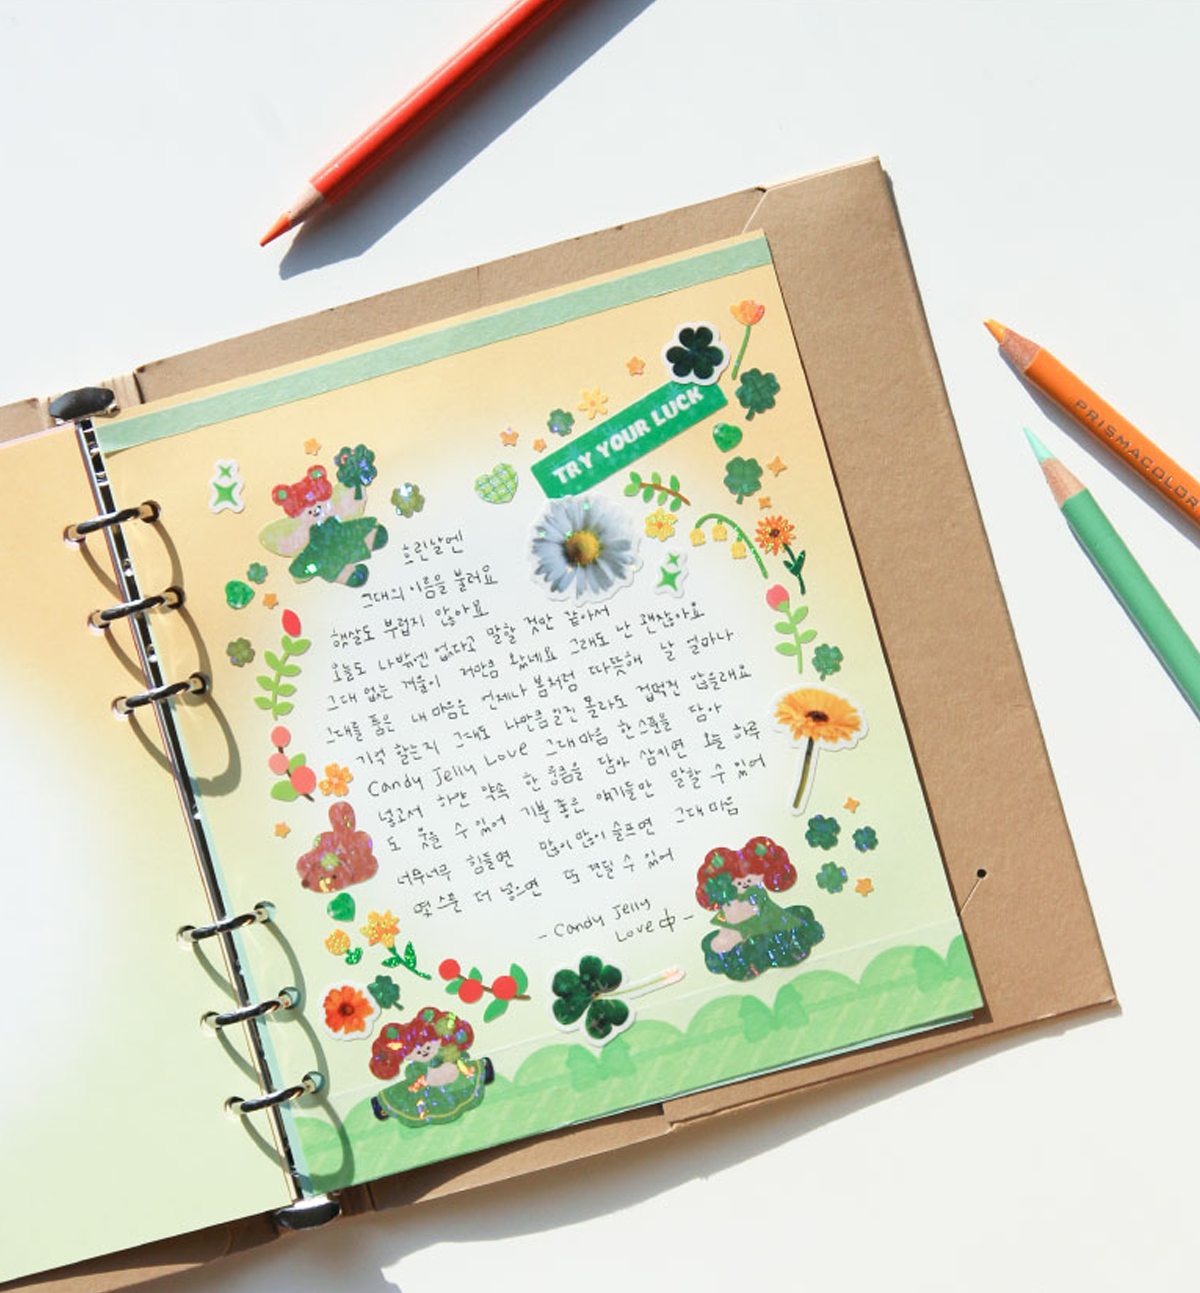 TRY YOUR LUCK
흐린날엔
그대의 이름을 불러요
햇살도 부럽지 않아요
오늘도 나밖엔 없다고 말할 것만 같아서
그대 없는 겨울이 저만큼 왔네요 그래도 난 괜찮아요
그대를 품은 내 마음은 언제나 봄처럼 따뜻해 날 얼마나
기억 할는지 그대도 나만큼일진 몰라도 겁먹진 않을래요
Candy Jelly Love 그대 마음 한 스푼을 담아
넣고서 하얀 약속 한 줌을 담아 삼키면 오늘 하루
도 웃을 수 있어 기분 좋은 얘기들만 말할 수 있어
너무너무 힘들면 많이 많이 슬프면 그대 마음
몇 스푼 더 넣으면 또 견딜 수 있어
- Candy Jelly
Love -
PRISMACOLOR